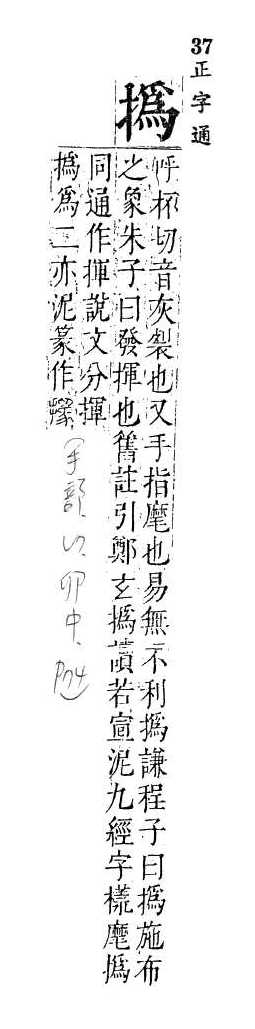 37
正字通
撝
呼杯切音灰裂也又手指麾也易無不利撝謙程子曰撝施布
之象朱子曰發揮也舊註引鄭玄撝讀若宣泥九經字樣麾撝
同通作揮說文分揮
撝爲二亦泥篆作
(手部 卯中、P74)